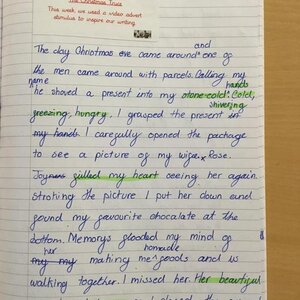 The Christmas Truce
This week we used a video advert
stimulus to inspire our writing.
and
The day Christmas eve came around one of
the men came around with parcels. Calling my
name hands
he shoved a present into my stone cold. Cold,
shivering
freezing, hungry. I grasped the present in
my hands. I carefully opened the package
to see a picture of my wife, Rose.
Joy filled my heart seeing her again.
Stroking the picture I put her down and
found my favourite chocolate at the
bottom. Memorys flooded my mind of
her homemade
my my making me goods and us
walking together. I missed her. Her beautiful